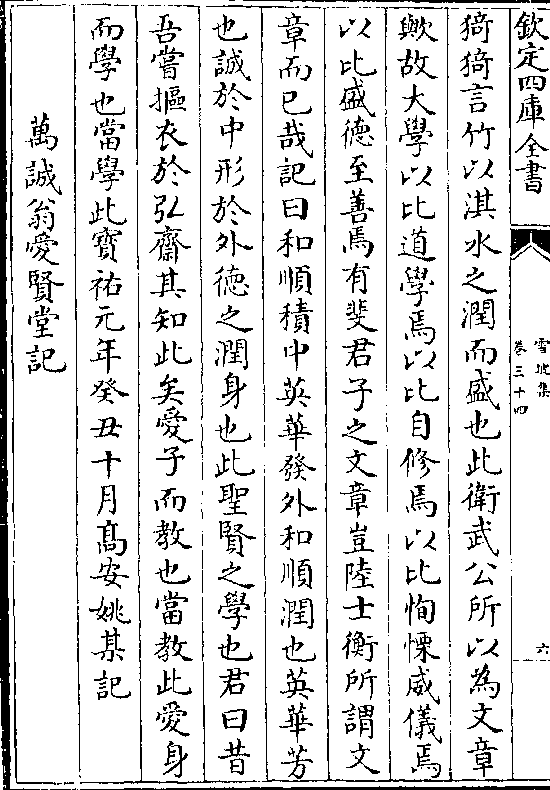 欽定四庫全書
雪坡集
卷三十四
六
猗猗言竹以淇水之潤而盛也此衛武公所以為文章
歟故大學以比道學焉以比自修焉以比恂慄威儀焉
以比盛德至善焉有斐君子之文章豈陸士衡所謂文
章而已哉記曰和順積中英華發外和順潤也英華芳
也誠於中形於外徳之潤身也此聖賢之學也君曰昔
吾嘗摳衣於弘齋其知此矣愛子而教也當教此愛身
而學也當學此寶祐元年癸丑十月髙安姚某記
萬誠翁愛賢堂記